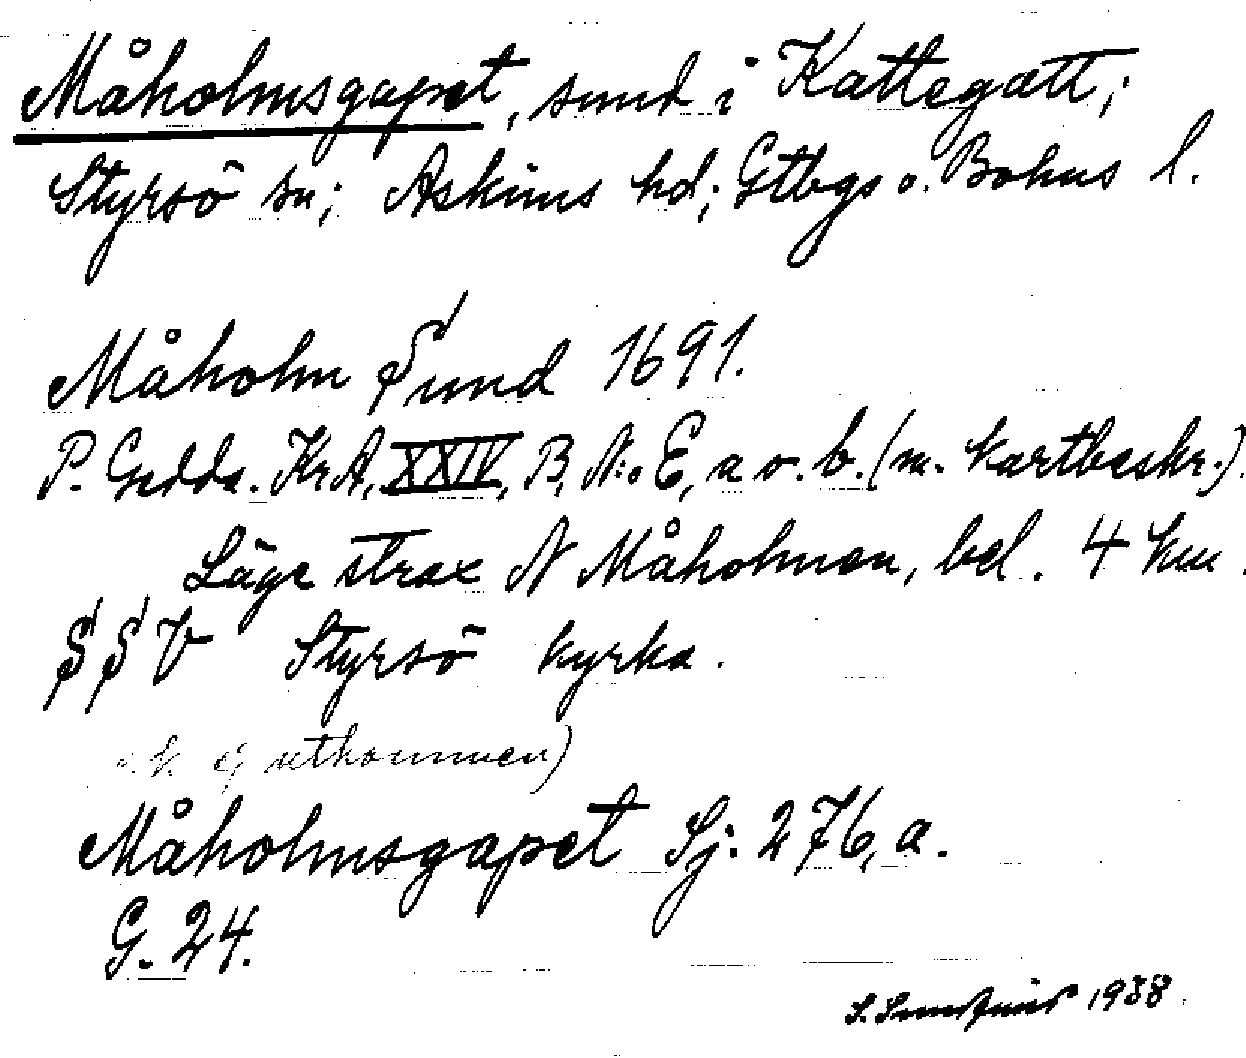 Måholmsgapet, sund i Kattegatt;
Styrsö sn; Askims hd; Gtbgs o. Bohus l.
Måholm Sund 1691.
P. Gedda. Kr.A, XXIV, B, N:o E, a o. b. (m. kartbeskr.).
Läge strax N Måholmen, bel. 4 km.
S S V Styrsö kyrka.
ej utkommen)
Måholmsgapet Sj. 276, a.
G. 24.
1938.